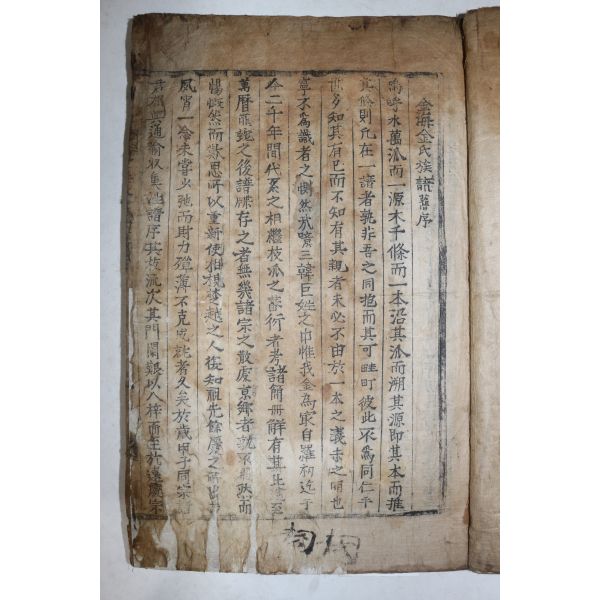 金海金氏族譜舊序
嗚呼水萬派而一源木千條而一本沿其派而溯其源即其本而推
其條則凡在一譜者孰非吾之同抱而其可畦町彼此不爲同仁乎
世多知其有己而不知有其親者未必不由於一本之義未之明也
寧不爲識者之惻然哉噫三韓巨姓之中惟我金爲最自羅初迄于
今二千年間代系之相繼枝派之蕃衍者考諸簡冊鮮有其比
萬曆龍蛇之後譜牒存之者無幾諸宗之散處京鄕者孰不
慨然而思所以重新使相視楚越之人徒知祖先餘慶之所
風宵一念未嘗少弛而財力殫薄不克成就者久矣於歲甲子同宗
通諭收其譜序其族流次其門閥艱以入梓而至於遠處宗